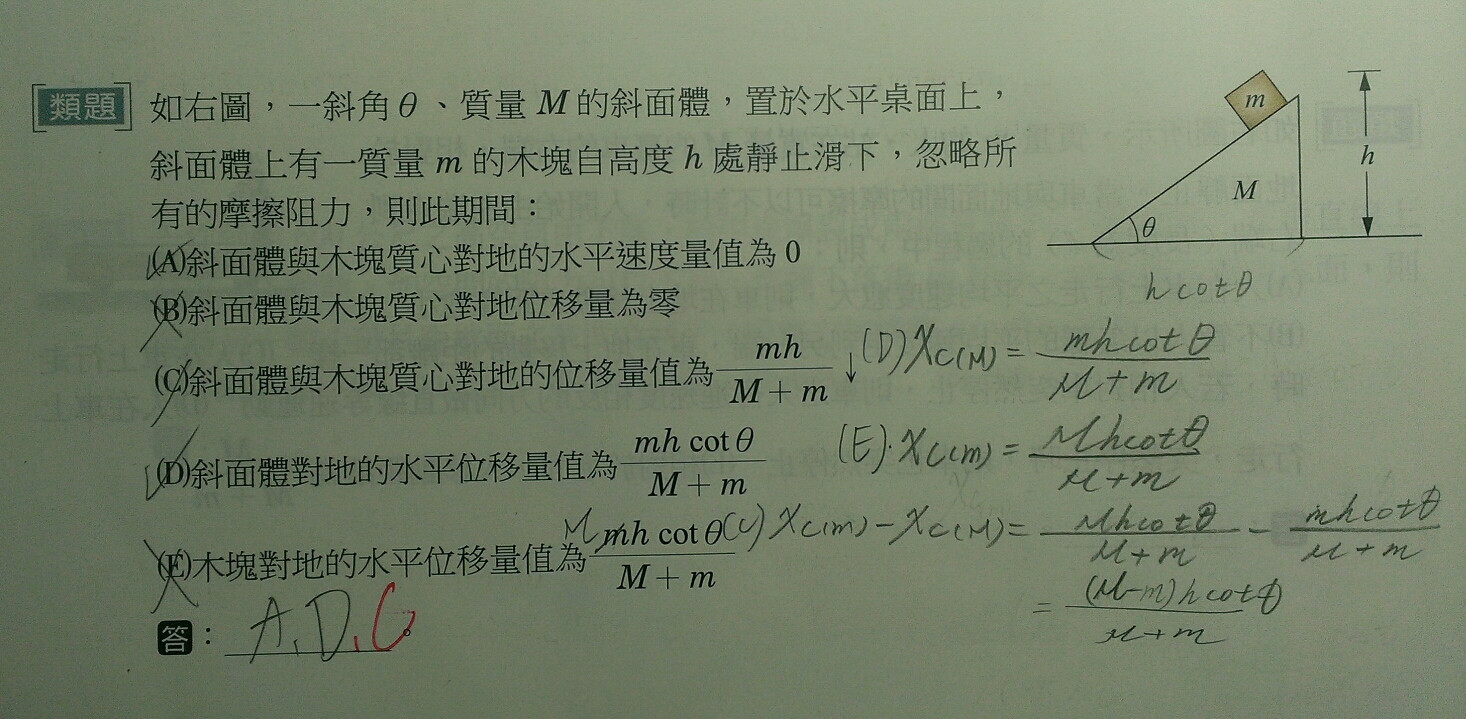 類題 如右圖，一斜角 θ 、質量 M 的斜面體，置於水平桌面上，
斜面體上有一質量 m 的木塊自高度 h 處靜止滑下，忽略所
有的摩擦阻力，則此期間：
m
h
M
θ
h cot θ
(A)斜面體與木塊質心對地的水平速度量值為 0
(B)斜面體與木塊質心對地位移量為零
(C)斜面體與木塊質心對地的位移量值為 mh / M + m ↓
(D) X_C(M) = mh cot θ / M + m
(D)斜面體對地的水平位移量值為 mh cot θ / M + m
(E). X_C(m) = Mh cot θ / M + m
(E)木塊對地的水平位移量值為 mh cot θ / M + m
M
(C) X_C(m) − X_C(M) = Mh cot θ / M + m − mh cot θ / M + m
= (M−m)h cot θ / M + m
答： A、D、C